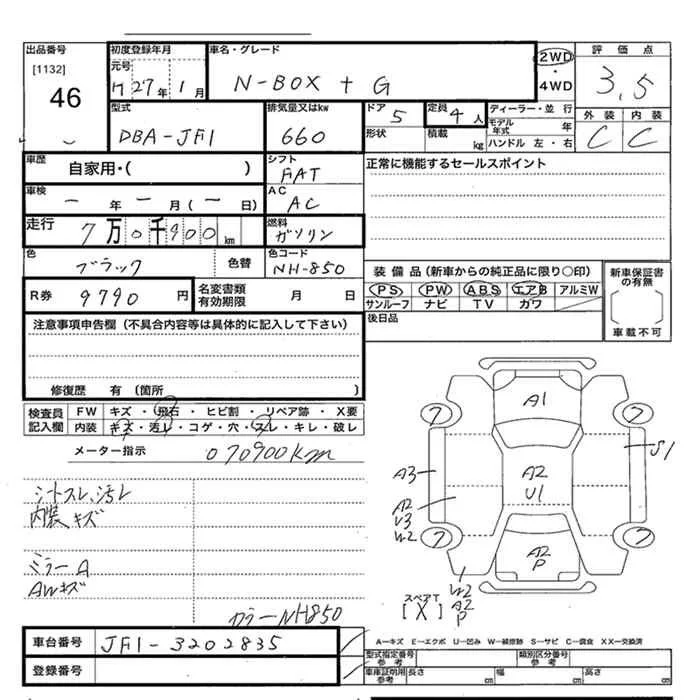 出品番号
[1132]
46
初度登録年月
元号
H 27年 1月
車名・グレード
N-BOX + G
2WD
・
4WD
評価点
3.5
型式
DBA-JF1
排気量又はkw
660
ドア
5
定員
4人
形状
積載
kg
ディーラー・並行
モデル年式 年
ハンドル 左・右
外装 内装
C C
車歴
自家用・( )
シフト
FAT
正常に機能するセールスポイント
車検
ー 年 ー 月 ( ー 日)
AC
AC
走行
7万0千900km
燃料
ガソリン
色
ブラック
色替
色コード
NH-850
装備品(新車からの純正品に限り○印)
PS PW ABS エアB アルミW
サンルーフ ナビ TV カワ
新車保証書の有無
車載不可
R券
9790円
名変書類有効期限
月 日
後日品
注意事項申告欄(不具合内容等は具体的に記入して下さい)
修復歴 有(箇所 )
検査員記入欄
FW キズ・飛石・ヒビ割・リペア跡・X要
内装 キズ・汚レ・コゲ・穴・スレ・キレ・破レ
メーター指示
070900km
シートスレ、汚レ
内装キズ
ミラーA
AWキズ
カラーNH850
A1
7
7
A3
A2
U1
S1
A2
U3
W2
7
7
A2
P
W2
A2
P
スペアT
[X]
車台番号
JF1-3202835
登録番号
A-キズ E-エクボ U-凹み W-補修跡 S-サビ C-腐食 XX-交換済
型式指定番号
参考
類別区分番号
参考
車庫証明用
参考
長さ cm
幅 cm
高さ cm